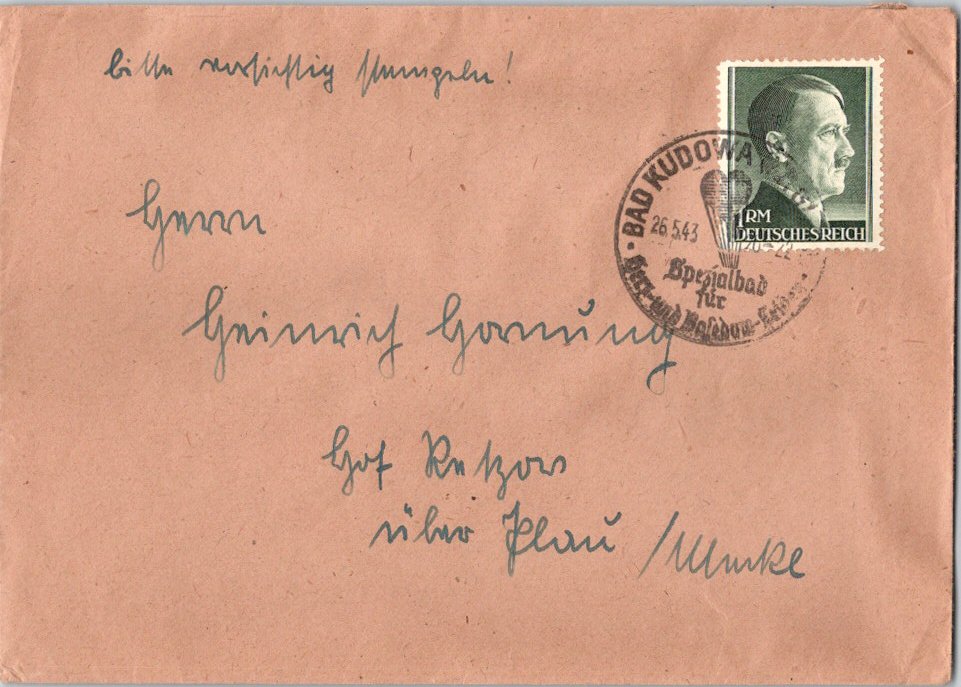 bitte vorsichtig stempeln!
1 RM
DEUTSCHES REICH
BAD KUDOWA
26.5.43
Spezialbad
für
Herz- und Basedow-
Herrn
Heinrich Hornung
Hof Retzow
über Plau /Meckl